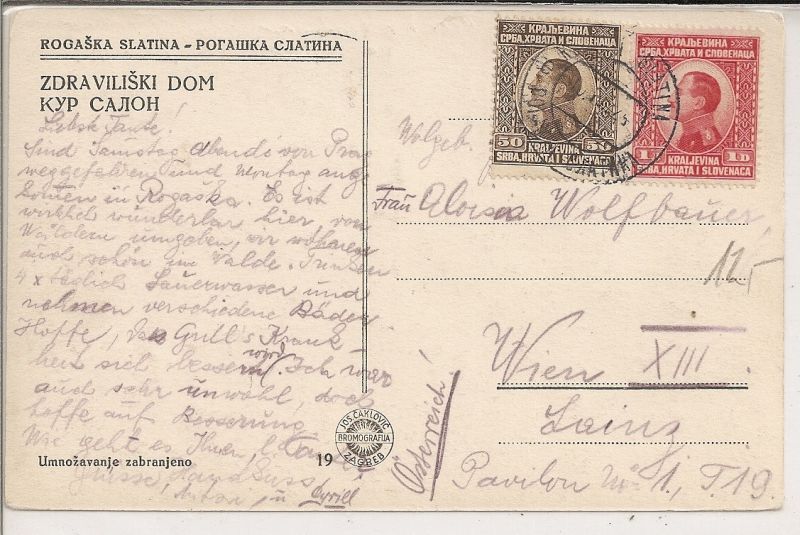 ROGAŠKA SLATINA - РОГАШКА СЛАТИНА
ZDRAVILIŠKI DOM
КУР САЛОН
Liebste Tante!
Sind Samstag Abends von Prag
weggefahren und Montag ange
kommen in Rogaška. Es ist
wirklich wunderbar hier, von
Wäldern umgeben, wir wohnen
auch schon im Walde. Trinken
4 x täglich Sauerwasser und
nehmen verschiedene Bäder
Hoffe, das Grill's Krank
heit sich bessern wird. Ich war
auch sehr unwohl, doch
hoffe auf Besserung
Wie geht es Ihnen, l. Tante?
Grüsse, Handkuss
Anton u Cyrill
Umnožavanje zabranjeno
19
JOS. ČAKLOVIĆ
BROMOGRAFIJA
ZAGREB
КРАЉЕВИНА
СРБА, ХРВАТА И СЛОВЕНАЦА
50 50
KRALJEVINA
SRBA, HRVATA I SLOVENACA
КРАЉЕВИНА
СРБА, ХРВАТА И СЛОВЕНАЦА
1Д 1D
KRALJEVINA
SRBA, HRVATA I SLOVENACA
SLATINA
Wolgeb.
Frau Aloisia Wolfbauer
12,-
Wien XIII
Lainz
Pavilon No 1, T 19.
Österreich!